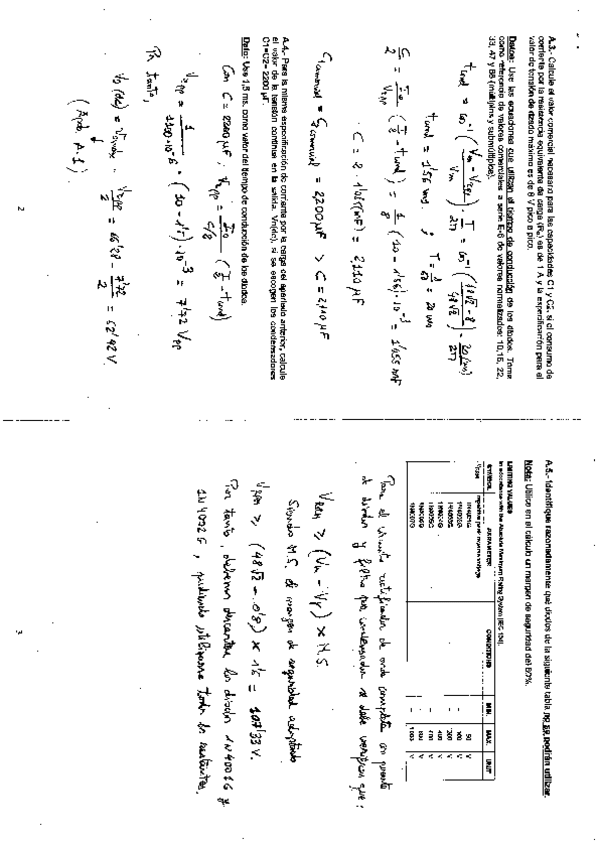 A.3.- Calcule el valor comercial necesario para las capacidades C1 y C2, si el consumo de
corriente por la resistencia equivalente de carga (RL) es de 1 A y la especificación para el
valor de tensión de rizado máximo es de 8 V pico a pico.
Datos: Use las ecuaciones que utilizan el tiempo de conducción de los diodos. Tome
como referencia de valores comerciales a serie E-6 de valores normalizados: 10, 15, 22,
33, 47 y 68 (múltiplos y submúltiplos).
t cond = cos⁻¹ ((Vm - Vrpp) / Vm) · T / 2π = cos⁻¹ ((48√2 - 8) / 48√2) 20(ms) / 2π
t cond = 1'56 ms. ; T = 1/50 = 20 ms
C/2 = Io/Vrpp (T/2 - t cond) = 1/8 (10 - 1'56) · 10⁻³ = 1'055 mF
C = 2 · 1'055 (mF) = 2.110 μF
C1 comercial = C2 comercial = 2200 μF > C = 2.110 μF
A.4.- Para la misma especificación de corriente por la carga del apartado anterior, calcule
el valor de la tensión continua en la salida, Vo(dc), si se escogen los condensadores
C1=C2= 2200 μF.
Dato: Use 1,5 ms. como valor del tiempo de conducción de los diodos.
Con C = 2200 μF, Vrpp = Io / C/2 (T/2 - t cond)
Vrpp = 1 / 1100·10⁻⁶ · (10 - 1'5) · 10⁻³ = 7'72 Vpp
Por tanto,
Vo (dc) = Vomax - Vrpp/2 = 66'28 - 7'72/2 = 62'42 V.
(Apdo. A.1)
2
A.5.- Identifique razonadamente qué diodos de la siguiente tabla no se podrán utilizar.
Nota: Utilice en el cálculo un margen de seguridad del 50%.
LIMITING VALUES
In accordance with the Absolute Maximum Rating System (IEC 134).
SYMBOL PARAMETER CONDITIONS MIN. MAX. UNIT
repetitive peak reverse voltage
1N4001G - 50 V
1N4002G - 100 V
1N4003G - 200 V
1N4004G - 400 V
1N4005G - 600 V
1N4006G - 800 V
1N4007G - 1000 V
Para el circuito rectificador de onda completa con puente
de diodos y filtro por condensador se debe verificar que:
VRRM ≥ (Vm - Vγ) × M.S.
Siendo M.S. el margen de seguridad adoptado
VRRM ≥ (48√2 - 0'8) × 1'5 = 107'33 V.
Por tanto, deberían descartarse los diodos 1N4001G y
1N4002G, pudiendo utilizarse todos los restantes.
3